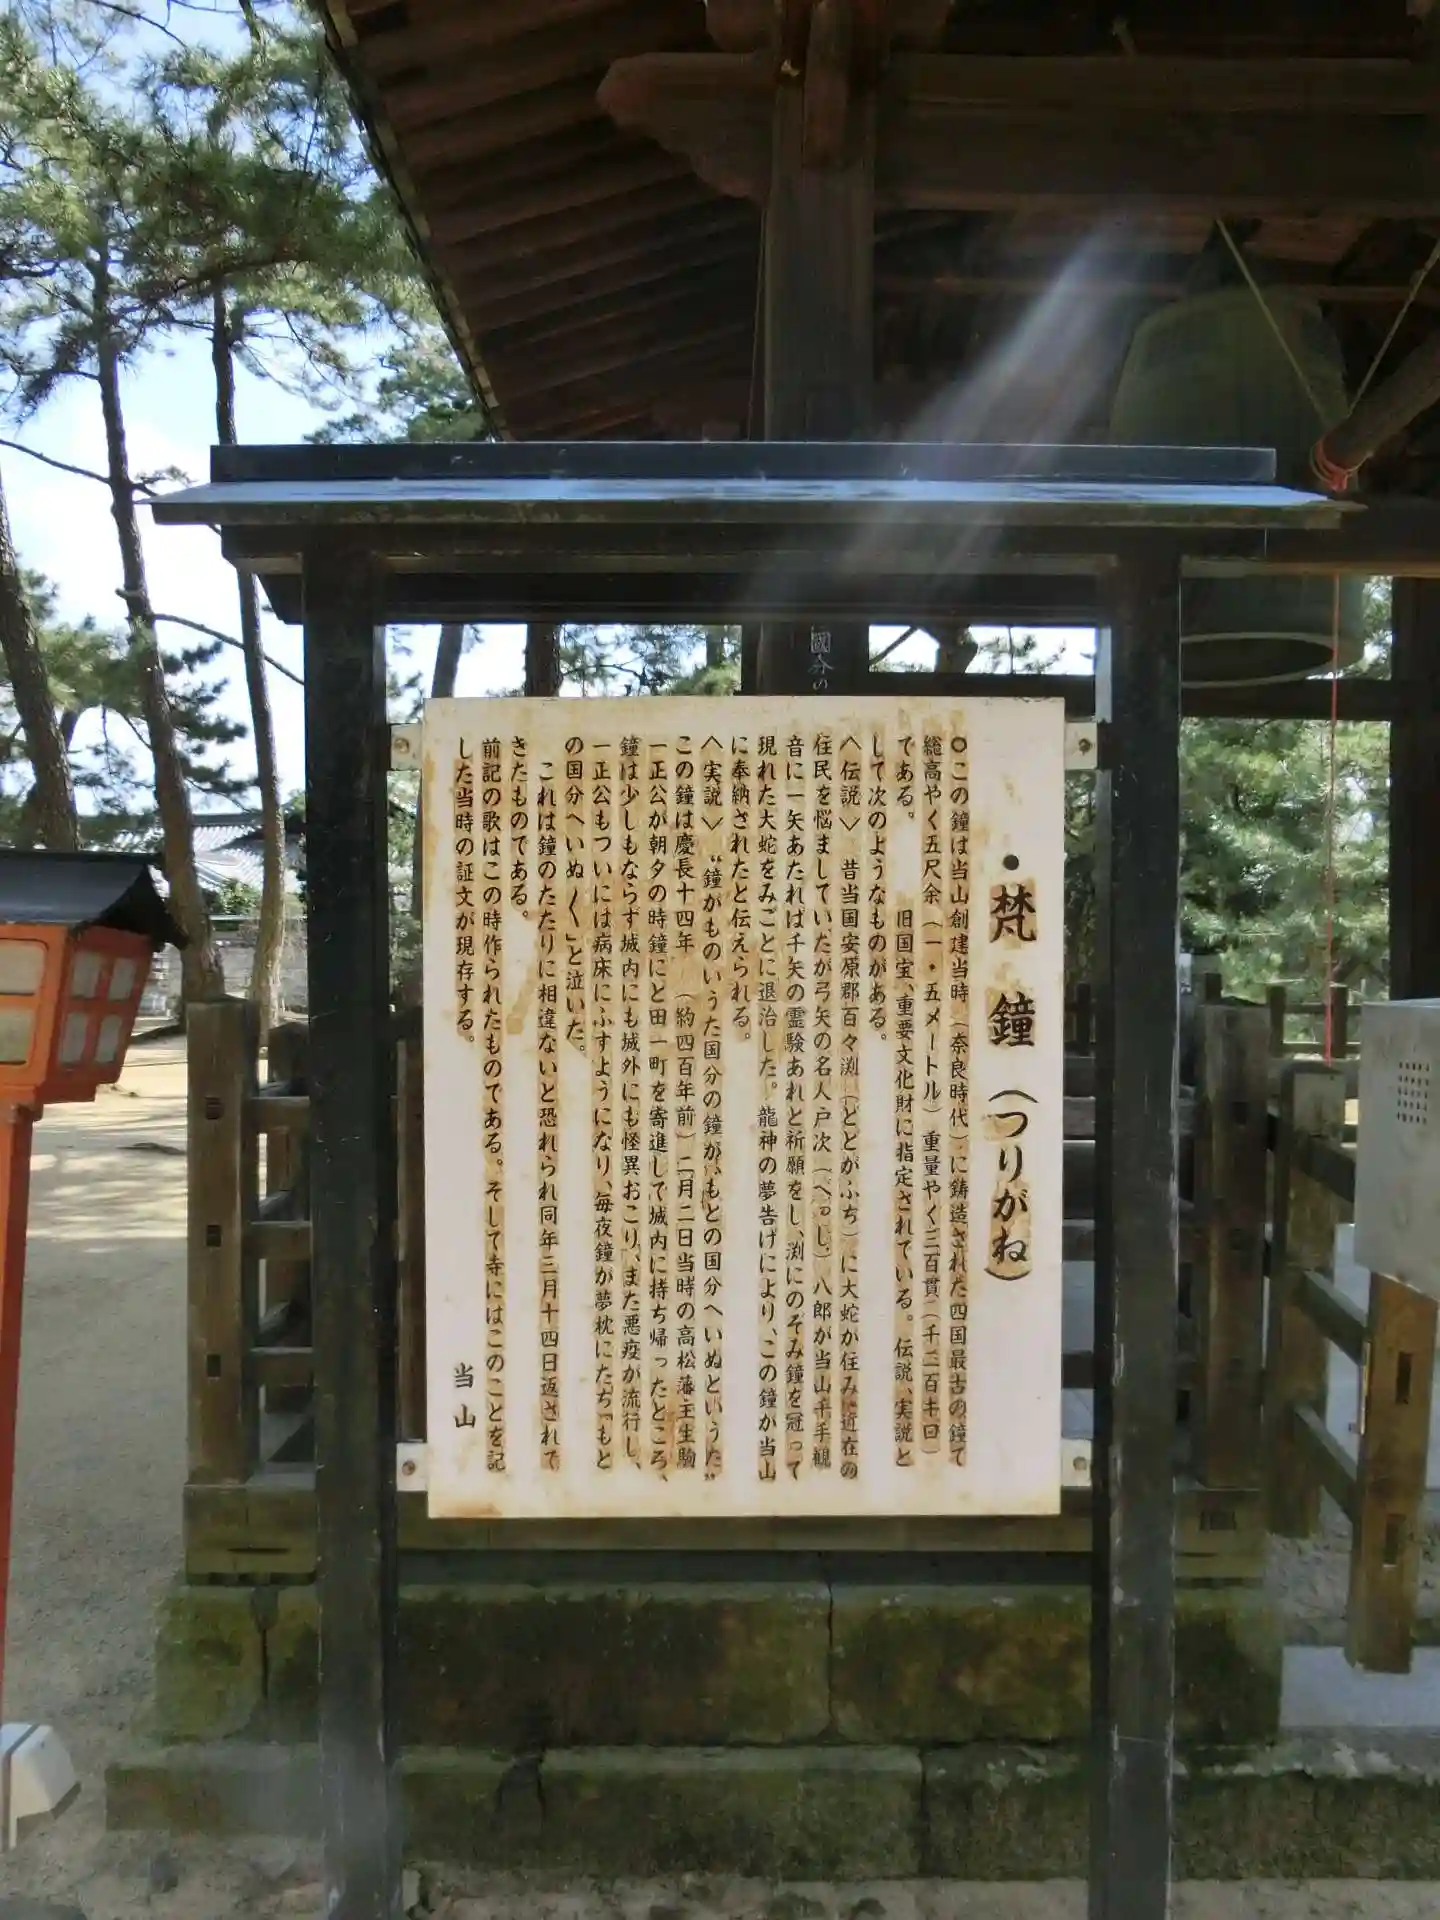 ・梵鐘（つりがね）
○この鐘は当山創建当時（奈良時代）に鋳造された四国最古の鐘で
総高やく五尺余（一・五メートル）重量やく三百貫（千二百キロ）
である。　　　旧国宝、重要文化財に指定されている。伝説、実説と
して次のようなものがある。
〈伝説〉　昔当国安原郡百々渕（どどがふち）に大蛇が住み近在の
住民を悩ましていたが弓矢の名人戸次（べっし）八郎が当山千手観
音に一矢あたれば千矢の霊験あれと祈願をし、渕にのぞみ鐘を冠って
現れた大蛇をみごとに退治した。龍神の夢告げにより、この鐘が当山
に奉納されたと伝えられる。
〈実説〉　“鐘がものいうた国分の鐘が、もとの国分へいぬというた”
この鐘は慶長十四年　（約四百年前）二月二日当時の高松藩主生駒
一正公が朝夕の時鐘にと田一町を寄進して城内に持ち帰ったところ、
鐘は少しもならず城内にも城外にも怪異おこり、また悪疫が流行し、
一正公もついには病床にふすようになり、毎夜鐘が夢枕にたち「もと
の国分へいぬ〱」と泣いた。
これは鐘のたたりに相違ないと恐れられ同年三月十四日返されて
きたものである。
前記の歌はこの時作られたものである。そして寺にはこのことを記
した当時の証文が現存する。
当山
國分の